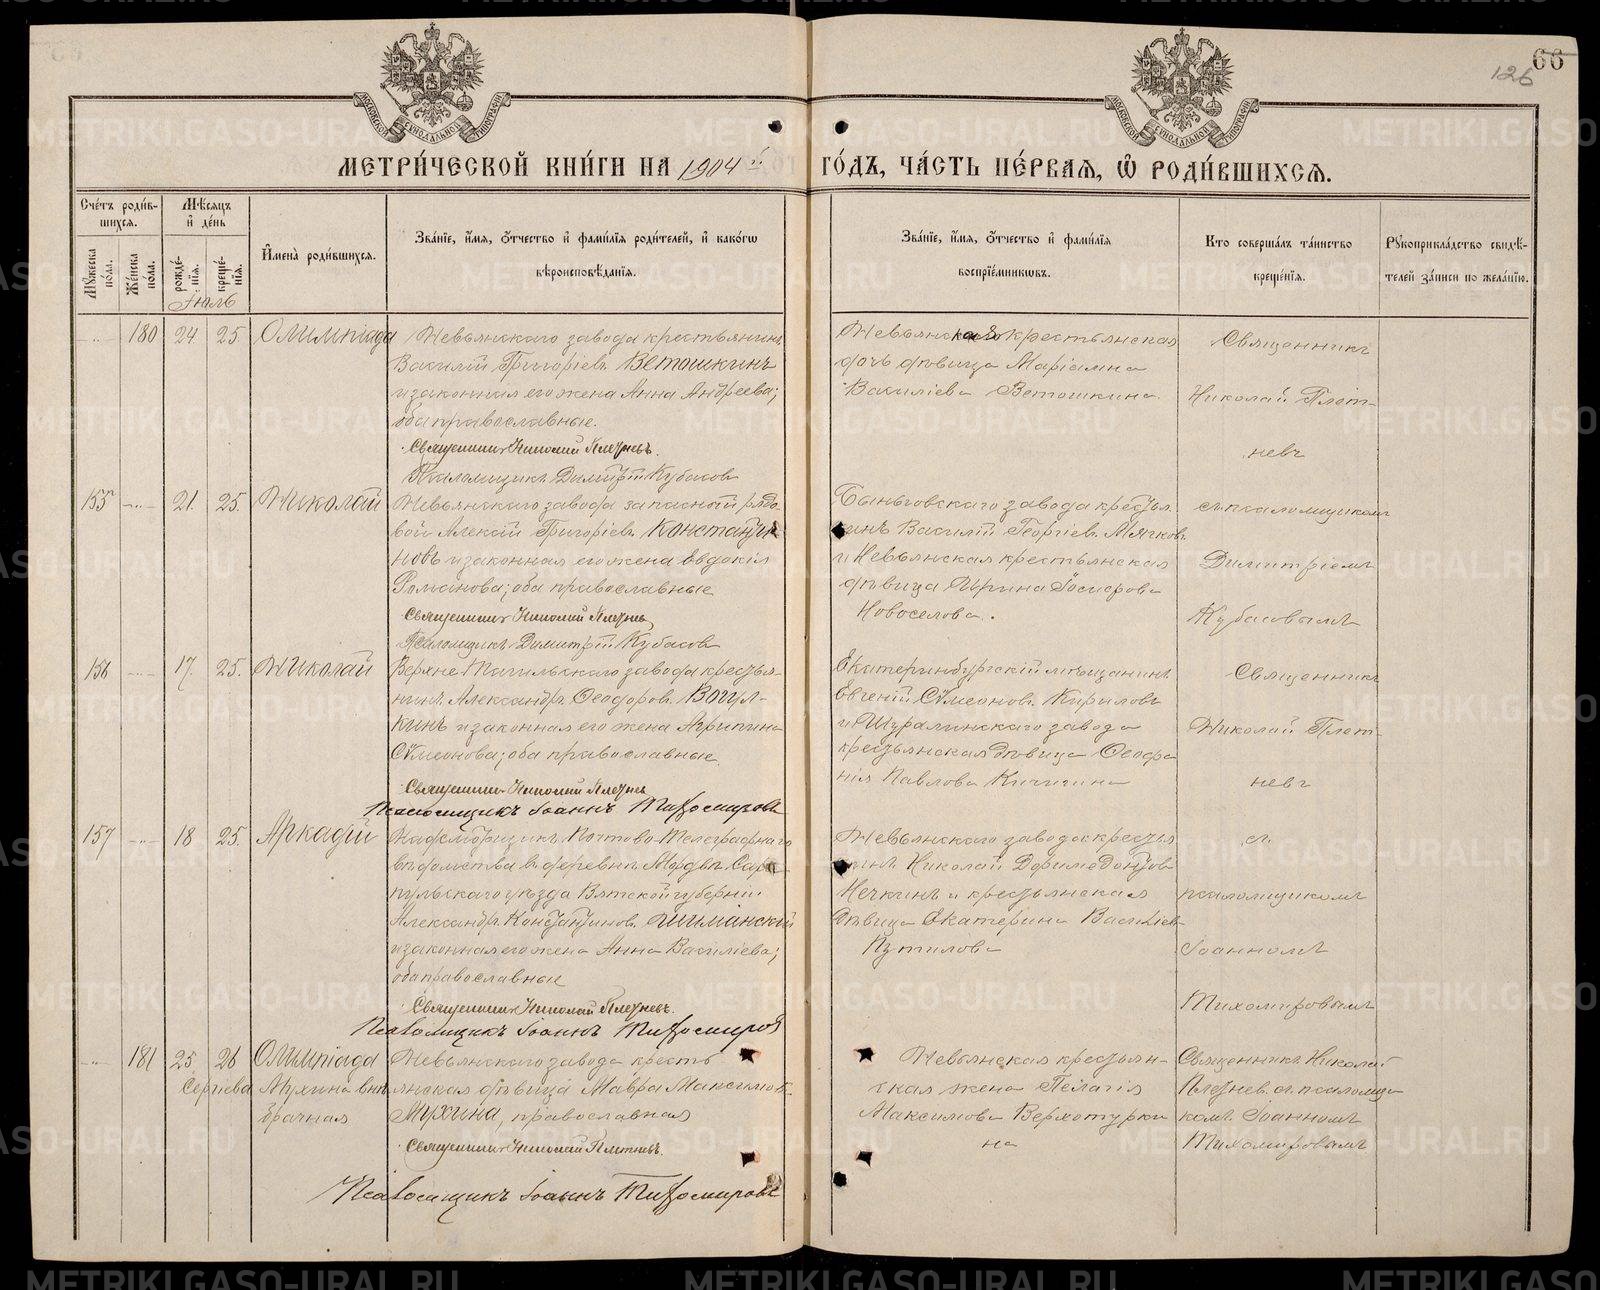 66
126
МЕТРИ́ЧЕСКОЙ КНИ́ГИ НА 1904 й ГО́ДЪ, ЧА́СТЬ ПЕ́РВАЯ, Ѽ РОДИ́ВШИХСЯ.
Сче́тъ роди́вшихся.
Мꙋ́жеска по́ла.
Же́нска по́ла.
Мѣ́сяцъ и҆ де́нь
рожде́нїя.
креще́нїя.
Имена̀ роди́вшихся.
Зва́нїе, и҆́мя, ѻ҆́тчество и҆ фами́лїя роди́телей, и҆ како́гѡ
вѣроисповѣ́данїя.
Зва́нїе, и҆́мя, ѻ҆́тчество и҆ фами́лїя
воспрїе́мникѡвъ.
Кто соверша́лъ та́инство
креще́нїя.
Рꙋкоприкла́дство свидѣ́телей за́писи по жела́нїю.
Іюль
180 24 25 Олимпіада
Невьянского завода крестьянинъ
Василій Григоріевъ Ветошкинъ
и законная его жена Анна Андреева;
оба православные.
Священникъ Николай Плетневъ.
Псаломщикъ Димитрій Кубасовъ
Невьянская крестьянская
дочь дѣвица Маріамна
Василіева Ветошкина
Священникъ
Николай Плет-
невъ
155 21 25 Николай
Невьянского завода запасный рядо-
вой Алексій Григоріевъ Константи-
новъ и законная его жена Евдокія
Романова; оба православные
Священникъ Николай Плетневъ
Псаломщикъ Димитрій Кубасовъ
Быньговскаго завода крестья
нинъ Василій Георгіевъ Мячковъ
и Невьянская крестьянская
дѣвица Ирина
Новоселова.
съ псаломщикомъ
Димитріемъ
Кубасовымъ
156 17 25 Николай
Верхне-Тагильскаго завода крестья-
нинъ Александръ Ѳеодоровъ Вогул-
кинъ и законная его жена Агрипина
Сѵмеонова; оба православные
Священникъ Николай Плетневъ
Псаломщикъ Іоаннъ Тихомировъ
Екатеринбургскій мѣщанинъ
Евгеній Сѵмеоновъ Кириловъ
и Шуралинскаго завода
крестьянская дѣвица Ѳеофа
нія Павлова Кичигина
Священникъ
Николай Плет-
невъ
157 18 25 Аркадій
Почтово-Телеграфнаго
вѣдомства въ деревнѣ Сара
пульскаго уѣзда Вятской губерніи
Александръ Константиновъ Шиманскій
и законная его жена Анна Василіева;
оба православные
Священникъ Николай Плетневъ.
Псаломщикъ Іоаннъ Тихомировъ
Невьянскаго завода крестья
нинъ Николай Доримедонтовъ
Нечкинъ и крестьянская
дѣвица Екатерина Василіев
Путилова
съ
псаломщикомъ
Іоанномъ
Тихомировымъ
181 25 26 Олимпіада
Сергіева Мухина внѣ
брачная
Невьянскаго завода кресть
янская дѣвица Мавра Максимова
Мухина, православная
Священникъ Николай Плетневъ.
Псаломщикъ Іоаннъ Тихомировъ
Невьянская крестьян-
ская жена Пелагія
Максимова Верхотурки
на
Священникъ Николай
Плетнев. съ псаломщи
комъ Іоанномъ
Тихомировымъ